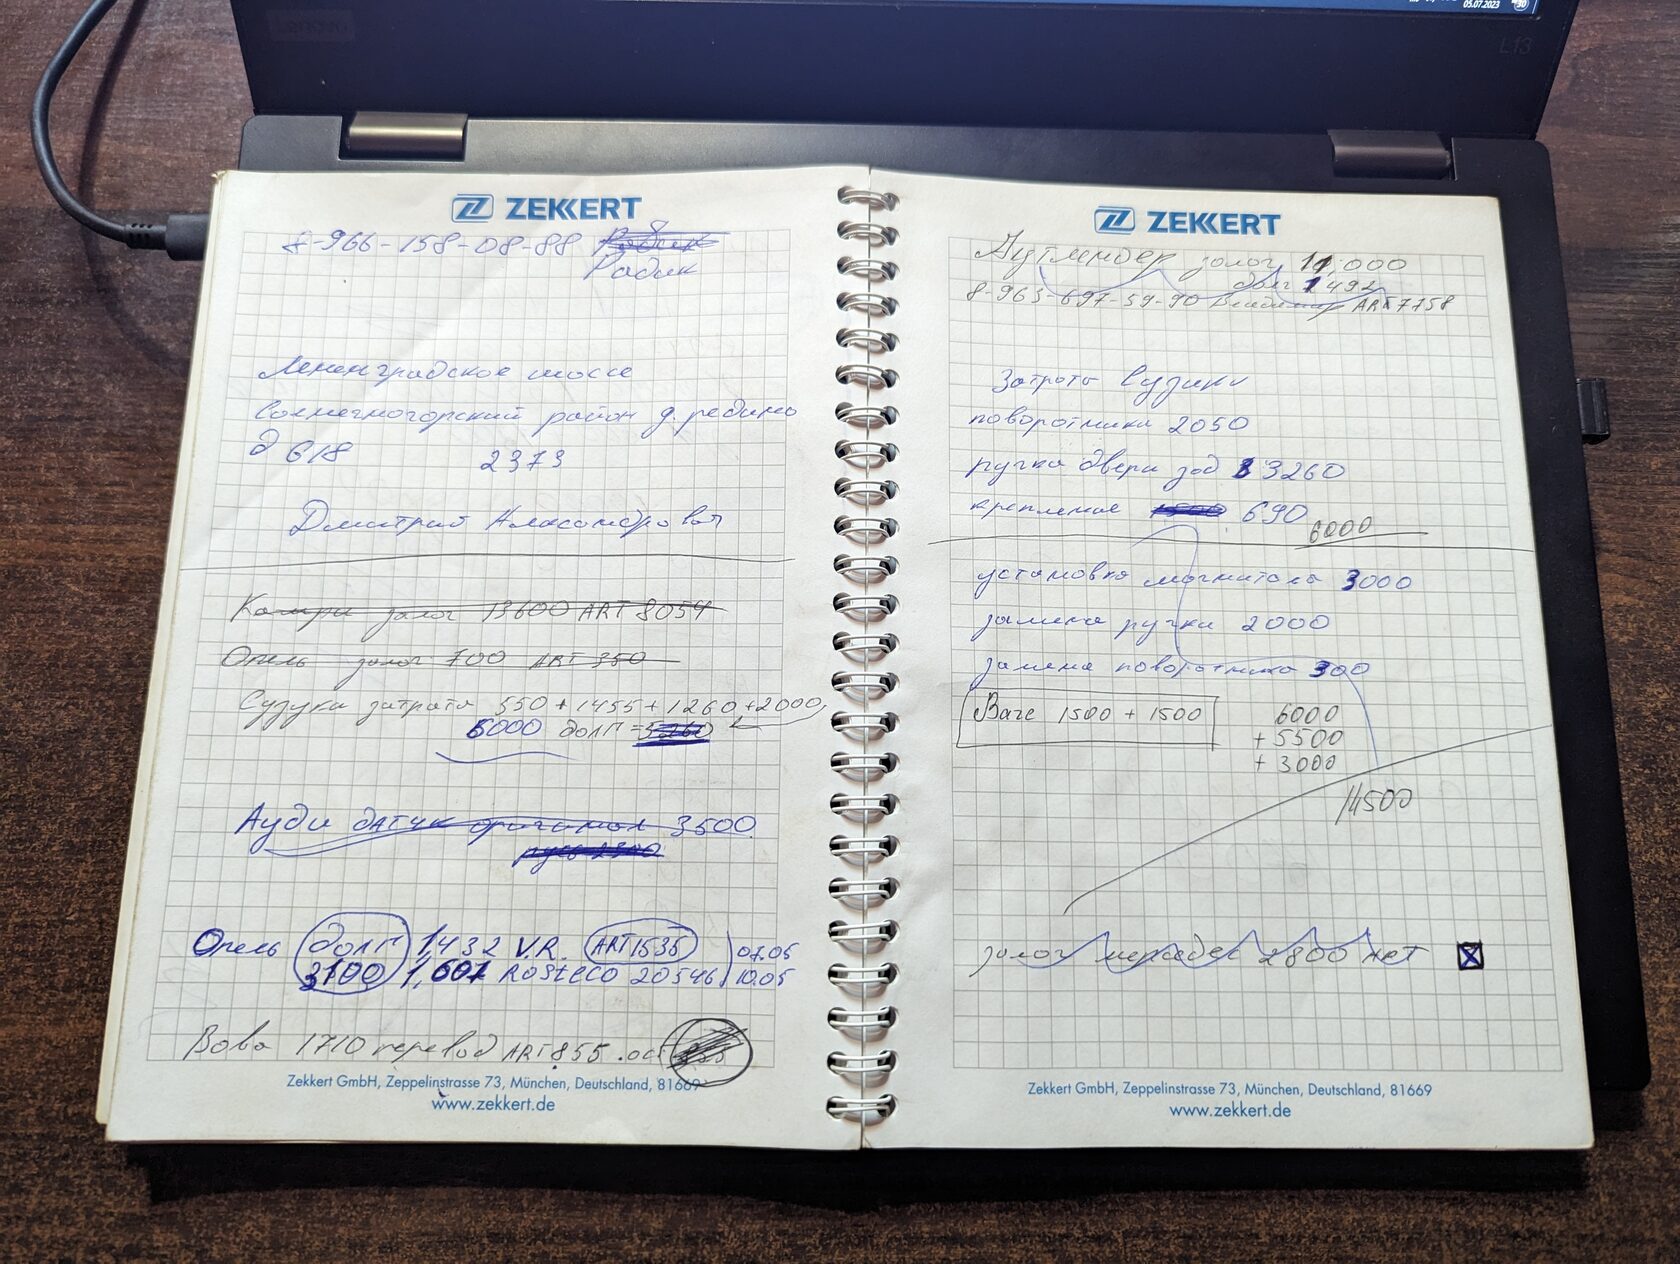 05.07.2023
L13
ZEKKERT
8-966-158-08-88
Радик
Ленинградское шоссе
Солнечногорский район д. редино
д 618 2373
Дмитрий Александрович
Камри залог 13600 ART 8054
Опель залог 700 ART 350
Сузуки затраты 550 + 1455 + 1260 + 2000
6000 долг = 5260
Ауди датчик оригинал 3500
Опель долг 1,432 V.R. ART1535 07.05
3100 1,607 ROSTECO 20546 10.05
Вова 1710 перевод ART 855 . ост
Zekkert GmbH, Zeppelinstrasse 73, München, Deutschland, 81669
www.zekkert.de
ZEKKERT
Аутлендер залог 11,000
долг 1492
8-963-697-59-90 Владимир ART7758
Затраты Сузики
поворотники 2050
ручка двери зад 3260
крепление 690
6000
установка магнитола 3000
замена ручки 2000
замена поворотника 300
Ваге 1500 + 1500
6000
+ 5500
+ 3000
14500
залог мерседес 2800 нет
Zekkert GmbH, Zeppelinstrasse 73, München, Deutschland, 81669
www.zekkert.de